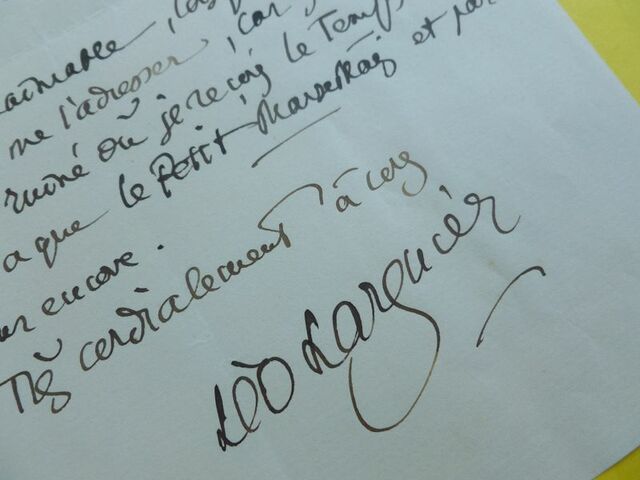 aimable,
me l'adresser, car
ruiné où je reçois le Temps
a que le Petit Marseillais et par
encore.
Très cordialement à vous
Léo Larguier